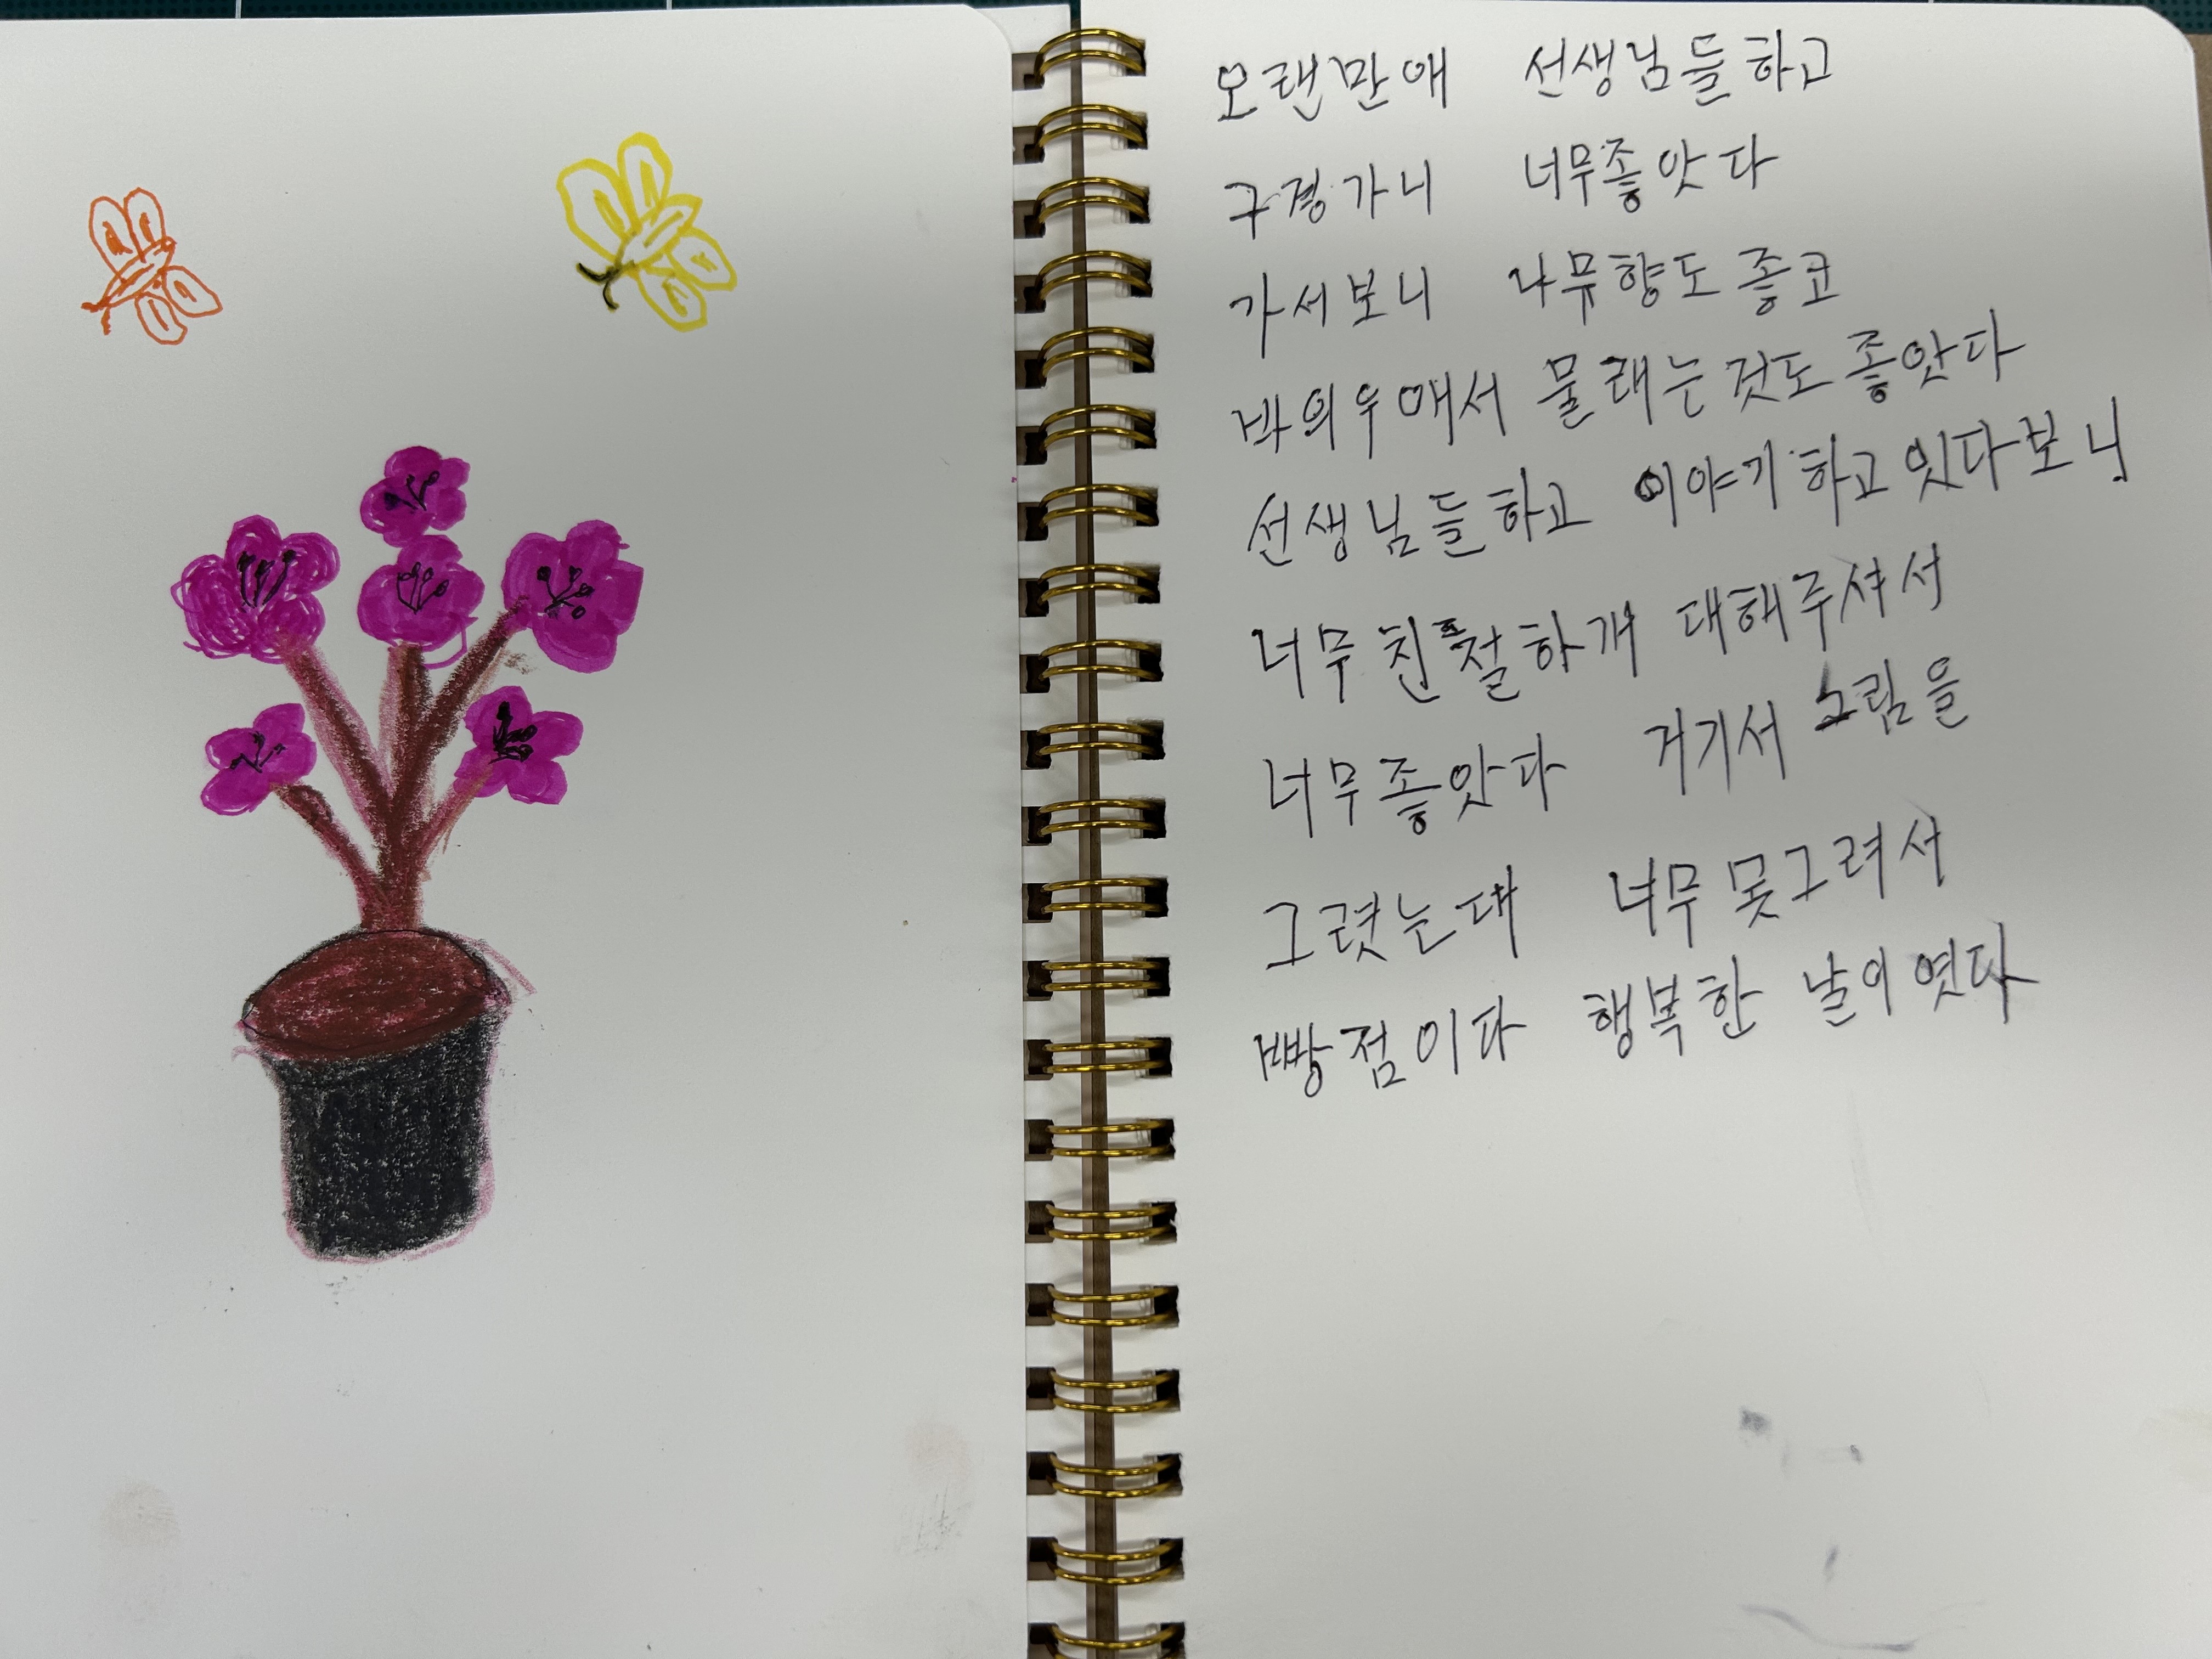 오랜만애 선생님들하고
구경가니 너무좋앗다
가서보니 나무향도좋코
바의우애서 물래는것도좋앗다
선생님들하고 이야기하고잇다보니
너무친절하개 대해주셔서
너무좋앗다 거기서 그림을
그렸는대 너무못그려서
빵점이다 행복한 날이엿다